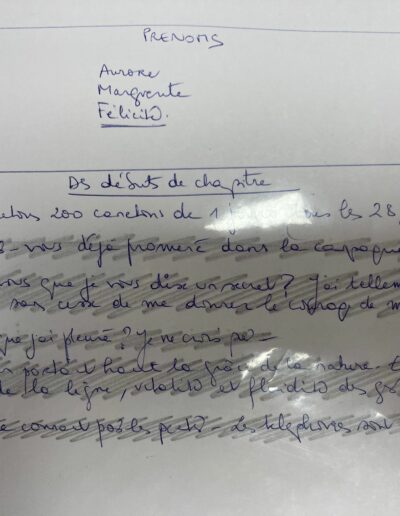 PRENOMS
Aurore
Marguerite
Félicité.
Ds débuts de chapitre
200 canetons de 1 les 28
vous déjà promené dans la campagne
vous que je vous dise un secret? J'ai tellem
de me donner le courag de m
que j'ai pleuré? Je ne crois pas
haut la grâce de la nature
de la ligne, vitalité et fluidité des g
connait pas les - Les téléphones sont